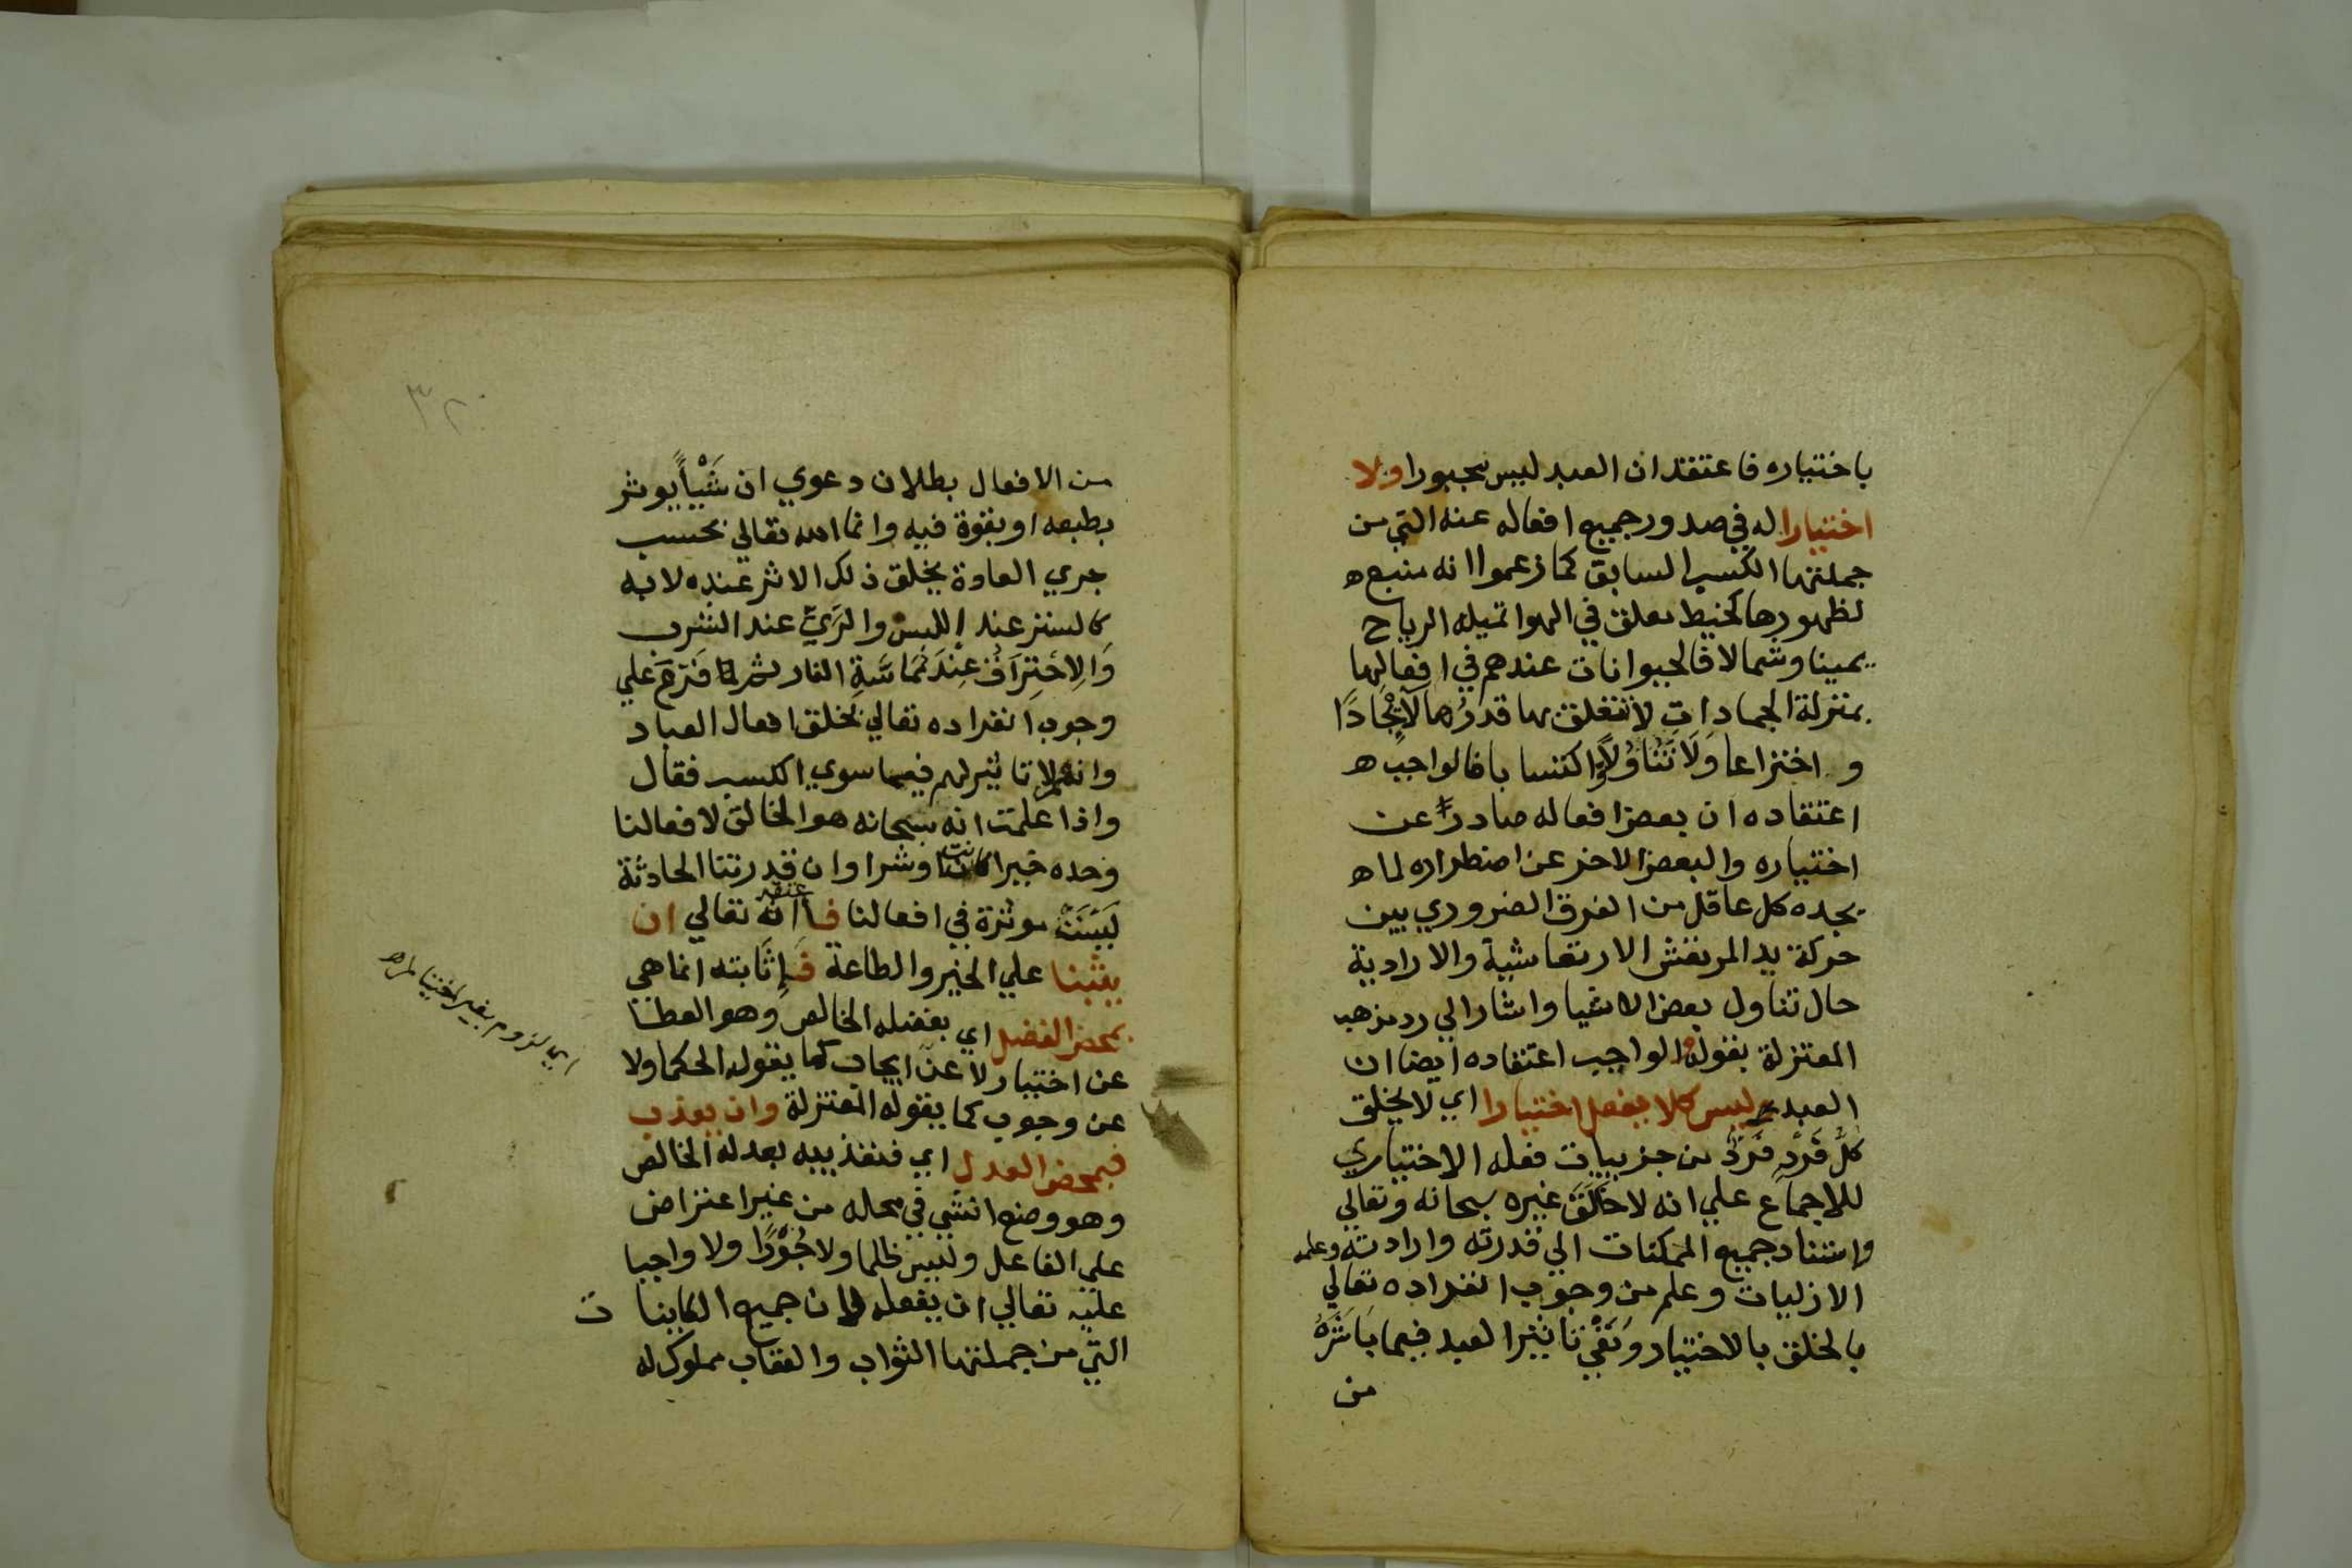 باختياره فاعتقد ان العبد ليس مجبورا ولا
اختيارا له في صدور جميع افعاله عنه التي من
جملتها الكسب السابق كما زعموا انه منبع ه
لظهورها كخيط معلق في الهوا تميله الرياح
يمينا وشمالا فالحيوانات عندهم في افعالها
بمنزلة الجمادات لا تتعلق بها قدرُها لا اِيْجادًا
و اختراعا وَلَا تَنَاوُلًا واكتسابا فالواجب ه
اعتقاده ان بعض افعاله صادرً عن
اختياره والبعض الاخر عن اضطراره لما ه
يجده كل عاقل من الفرق الضروري بين
حركة يد المرتعش الارتعاشية والارادية
حال تناول بعض الاشيا واشار الي رد مذهب
المعتزلة بقوله الواجب اعتقاده ايضا ان
العبد وليس كلا يفعل اختيارا اي لا يخلق
كلَّ فَرْدٍ فَرْدٍ من جزييات فعله الاختياري
للاجماع علي انه لا خَالَقَ غيره سبحانه وتعالي
واستناد جميع الممكنات الي قدرته وارادته وعلمه
الازليات وعلم من وجوب انفراده تعالي
بالخلق بالاختيار وَنَفْيِ تاثير العبد فيما بَاشَرَهُ
من
٣٢
من الافعال بطلان دعوي ان شَيْأً يوثر
بطبعه او بقوة فيه وانما الله تعالي بحسب
جري العادة يخلق ذلك الاثر عنده لا به
كالستر عند اللبس والرَيِّ عند الشرب
وَالِاحْتِرَاقُ عِندَ مُمَاسَّةِ النار ثم فَرَّعَ علي
وجوب انفراده تعالي بخلق افعال العباد
وانهم لا تاثير لهم فيما سوي الكسب فقال
واذا علمت انه سبحانه هو الخالق لافعالنا
وحده خيرا كانت او شرا وان قدرتنا الحادثة
لَيْسَتْ موثرة في افعالنا فاعتقد انه تعالي ان
يثبنا علي الخير والطاعة فَاِثَابته انما هي
بمحض الفضل اي بفضله الخالص وهو العطا
عن اختيار لا عن ايجاب كما يقوله الحكما ولا
عن وجوب كما يقوله المعتزلة وان يعذب
فبمحض العدل اي فتعذيبه بعدله الخالص
وهو وضع الشي في محله من غير اعتراض
علي الفاعل وليس ظلما ولا جُوْرًا ولا واجبا
عليه تعالي ان يفعله لان جميع الكاينا ت
التي من جملتها الثواب والعقاب مملوك له
اي لزوم بغير اختيار